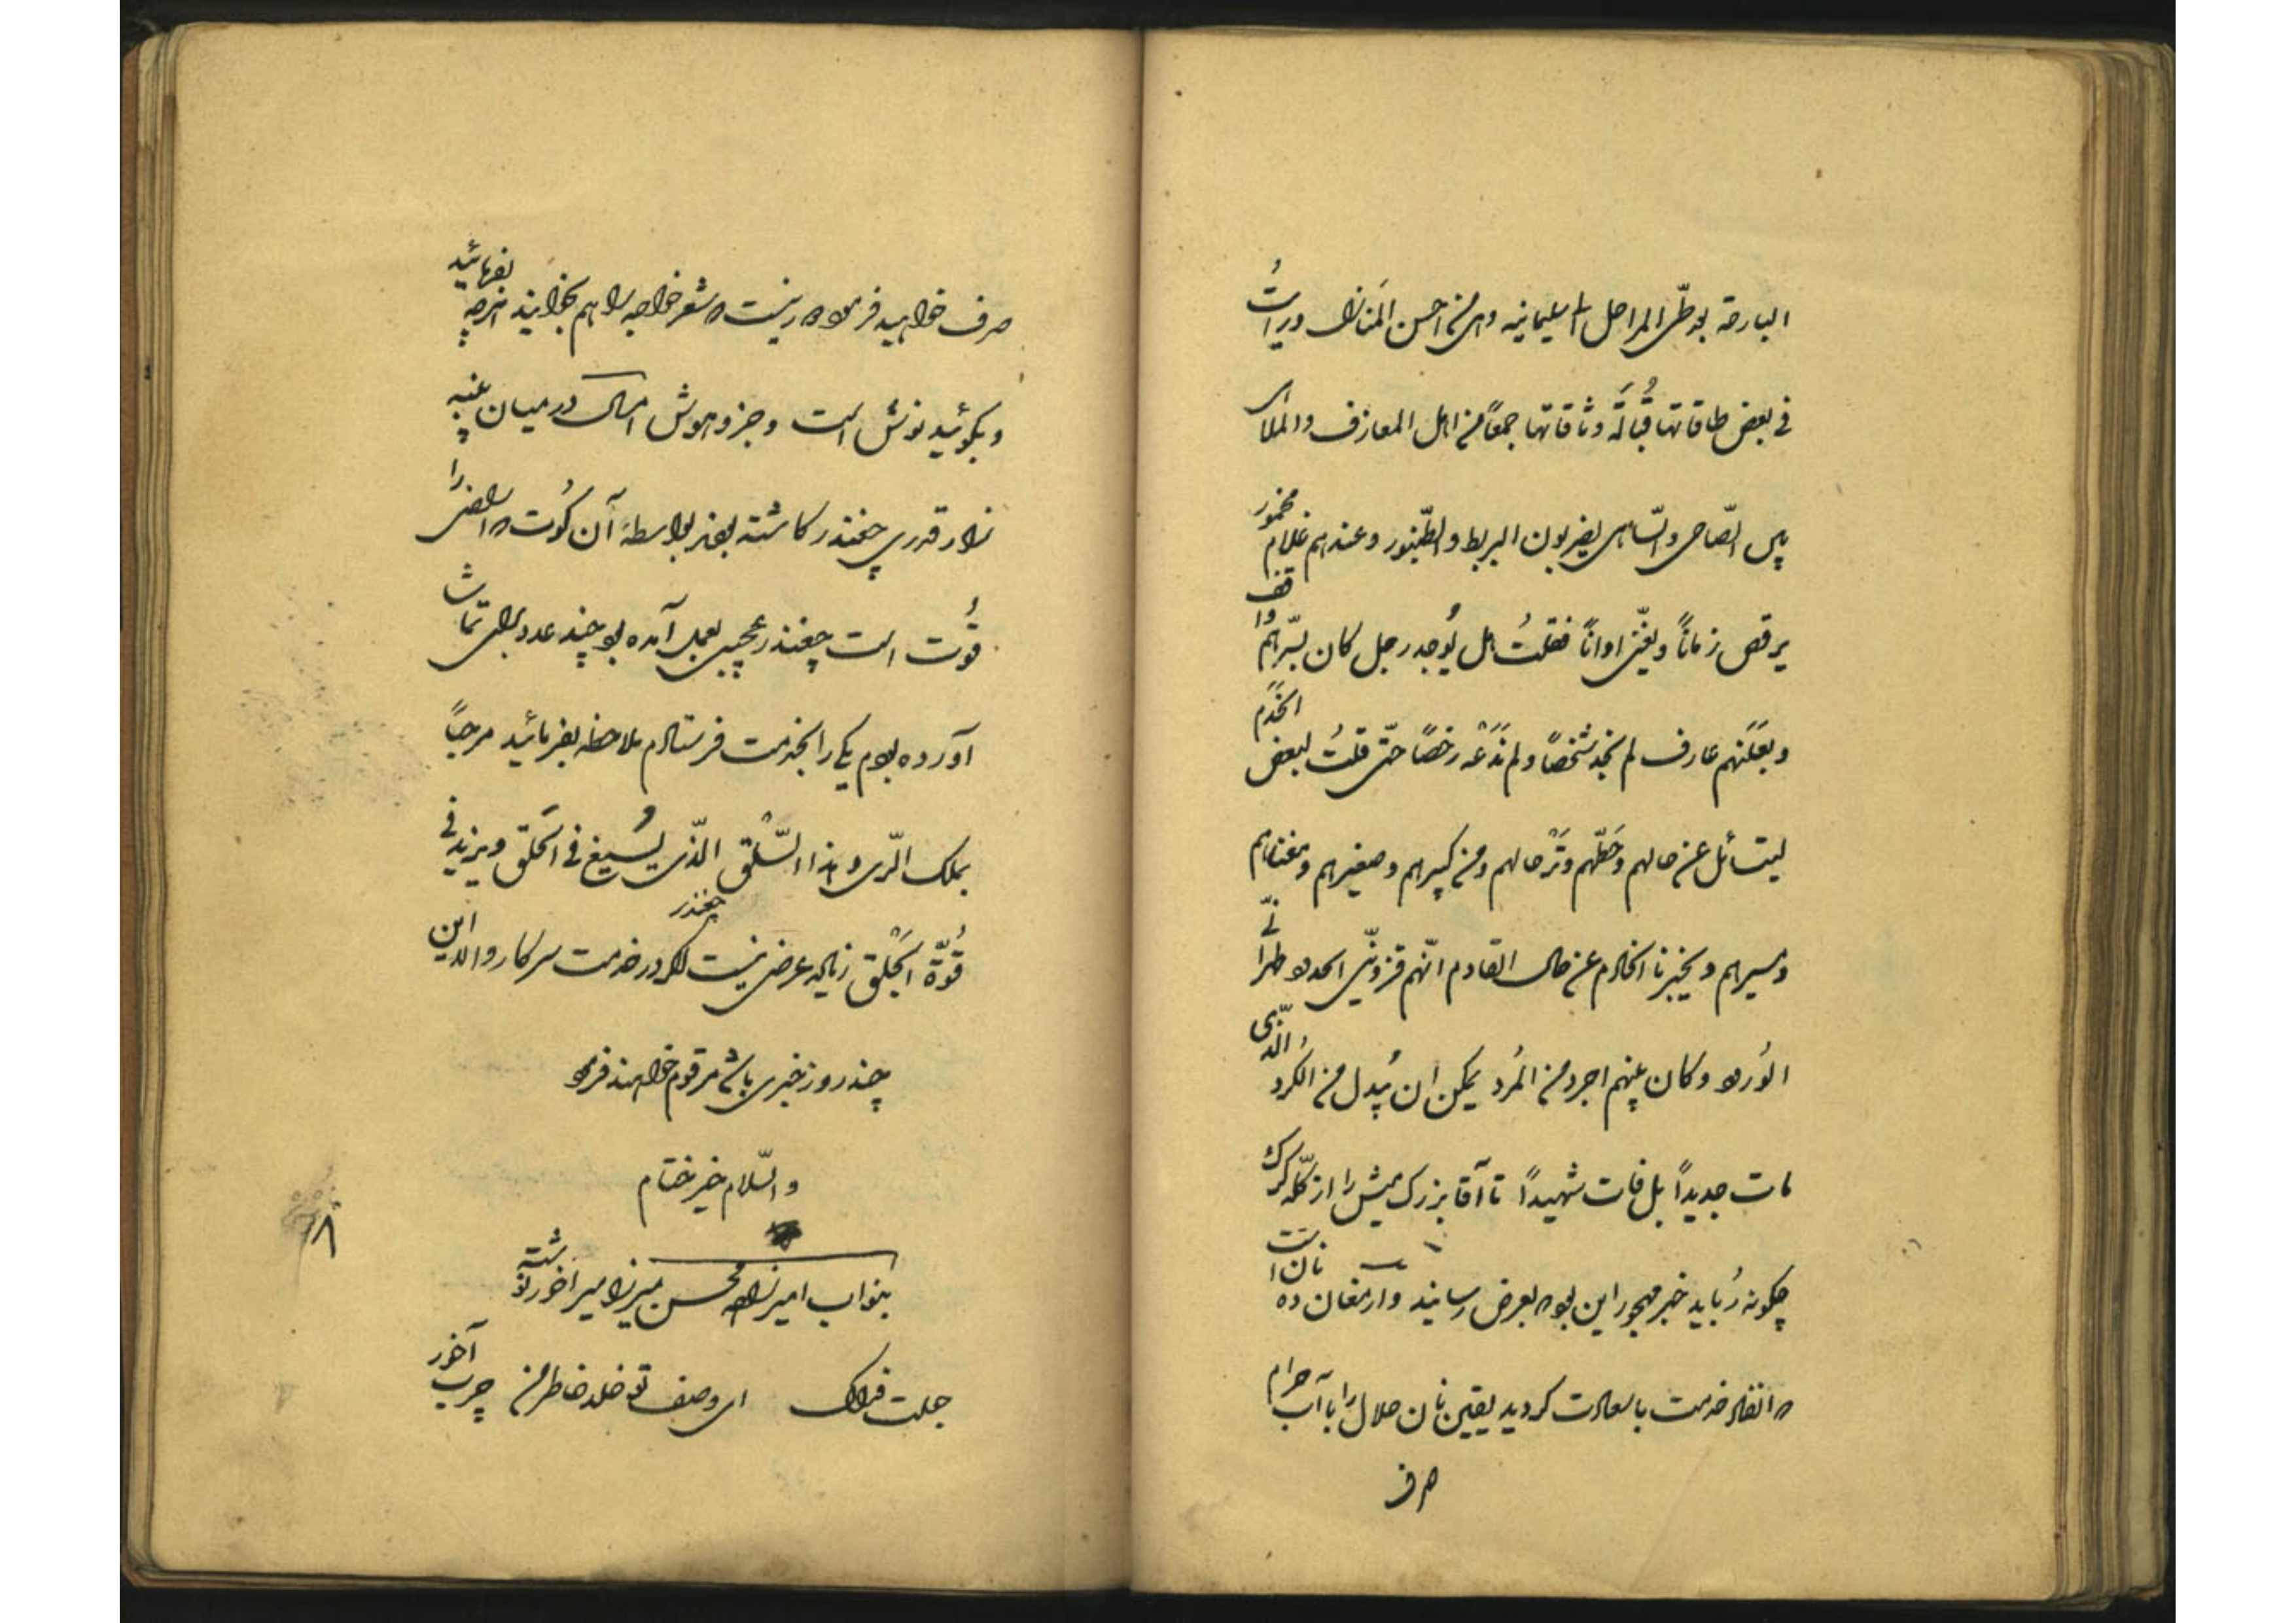 البارحة بعد طی المراحل السلیمانیه وهی من احسن المنازل ورایت
فی بعض طاقاتها قبالة وثاقاتها جمعاً من اهل المعازف والملاهی
بین الصاحی والساهی یضربون البربط والطنبور وعندهم غلام مخمور
یرقص زماناً ویغنی اواناً فقلتُ هل یُوجد رجل کان بسرّهم واقف
وبعَلَنهم عارف لم نجد شخصاً ولم نَدَعْه رخصاً حتّی قلتُ لبعض الخَدَم
لیتسائل عن حالهم وحَطّهم وتَرْحالهم ومن کبیرهم وصغیرهم ومغناهم
ومسیرهم ویخبرنا الخادم عن حال القادم انّهم قزوینی طرّاً
وکان بینهم اجرد من المُرد یمکن ان یُبدل من الکرد الذی
مات جدیداً بل فات شهیداً تا آقا بزرک میش را از کلّه کرک
چکونه رُباید خبر مهجور این بود که بعرض رسانید وارمغان ده نان است
که انفاد خدمت با سعادت کردید یقین نان حلال را با آب حرام
صرف
صرف خواهید فرمود شعر خواجه را هم بخوانید هرچه بفرمائید
و بکوئید نوش است وجزو هوش امسال در میان پنبه
زار قدری چغندر کاشته بودند بواسطهٔ آن کُوت که ارض را
قُوت است چغندر عجیبی بعمل آمده بود چند عدد برای تماشا
آورده بودم یکی را بخدمت فرستادم ملاحظه بفرمائید مرحباً
بملک الرّی وهذا السّلْق الّذی یُسیغ فی الحَلق ویزید فی
قُوّة الجَلْق زیاده عرضی نیست اکر در خدمت سرکار والا این
چغندر
چند روز خبری باشد مرقوم خواهند فرمود
والسّلام خیر ختام
بنواب امیرزاده محسن میرزا میر آخور نوشته
جعلت فداک ای وصف تو خلد خاطر من چرب آخور
۸